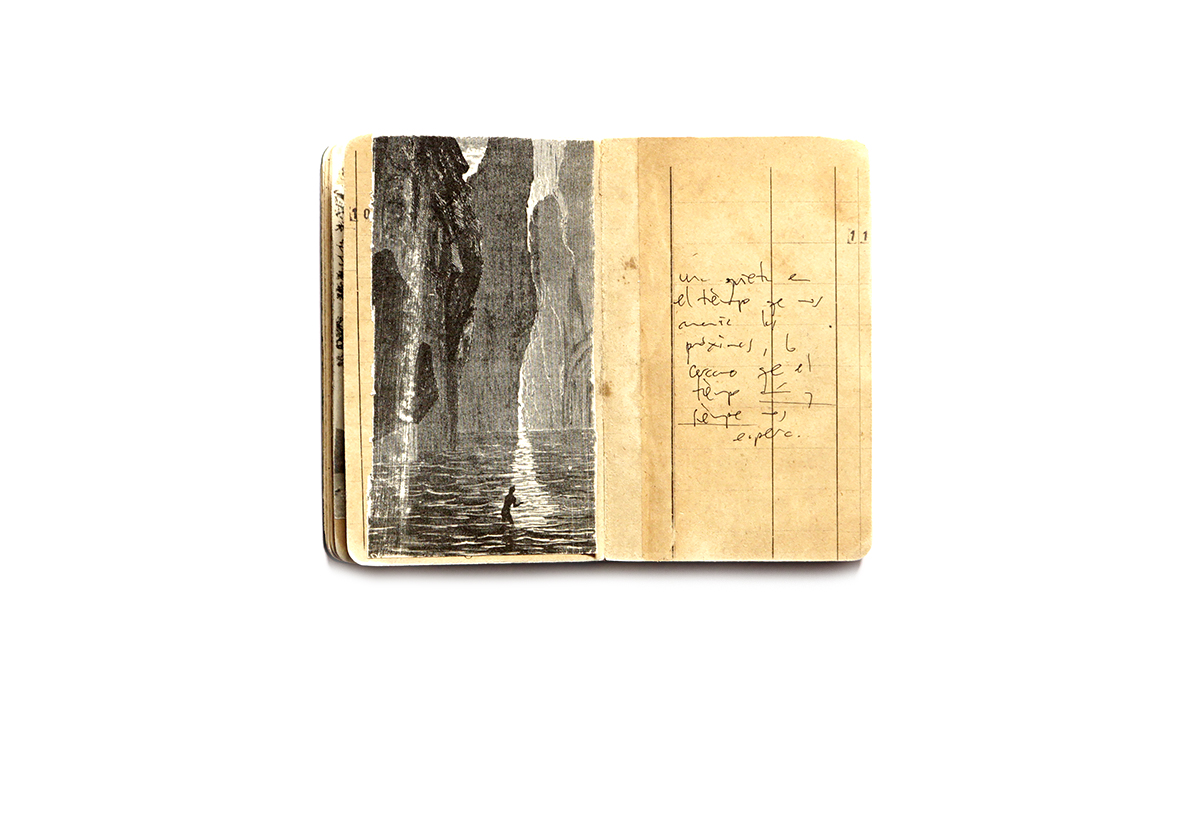 10
11
una grieta en
el tiempo que nos
los
próximos, lo
cercano que el
tiempo
siempre nos
espera.